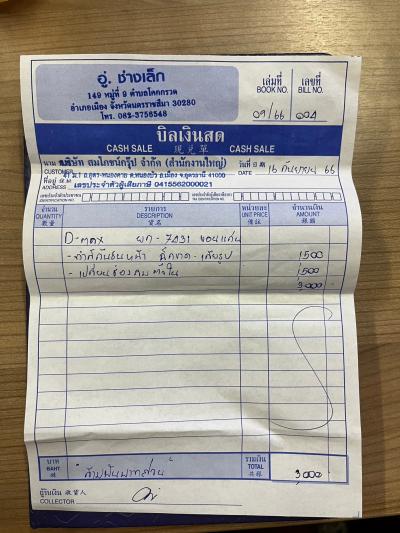 อู่. ช่างเล็ก
149 หมู่ที่ 9 ตำบลโคกกรวด
อำเภอเมือง จังหวัดนครราชสีมา 30280
โทร. 082-3756548
เล่มที่ เลขที่
BOOK NO. BILL NO.
09/66 004
บิลเงินสด
CASH SALE 現兑單 CASH SALE
นาม บริษัท สมโภชน์กรุ๊ป จำกัด (สำนักงานใหญ่)
CUSTOMER
วันที่
DATE 16 กันยายน 66
ที่อยู่ ม.1 ถ.อุดร-หนองคาย ต.หนองบัว อ.เมือง จ.อุดรธานี 41000
ADDRESS เลขประจำตัวผู้เสียภาษี 0415562000021
จำนวน รายการ หน่วยละ จำนวนเงิน
QUANTITY DESCRIPTION UNIT PRICE AMOUNT
D-max ผก-7431 ขอนแก่น
1500
1500
3,000
บาท รวมเงิน
BAHT สามพันบาทถ้วน TOTAL 3,000
ผู้รับเงิน 收貨人
COLLECTOR